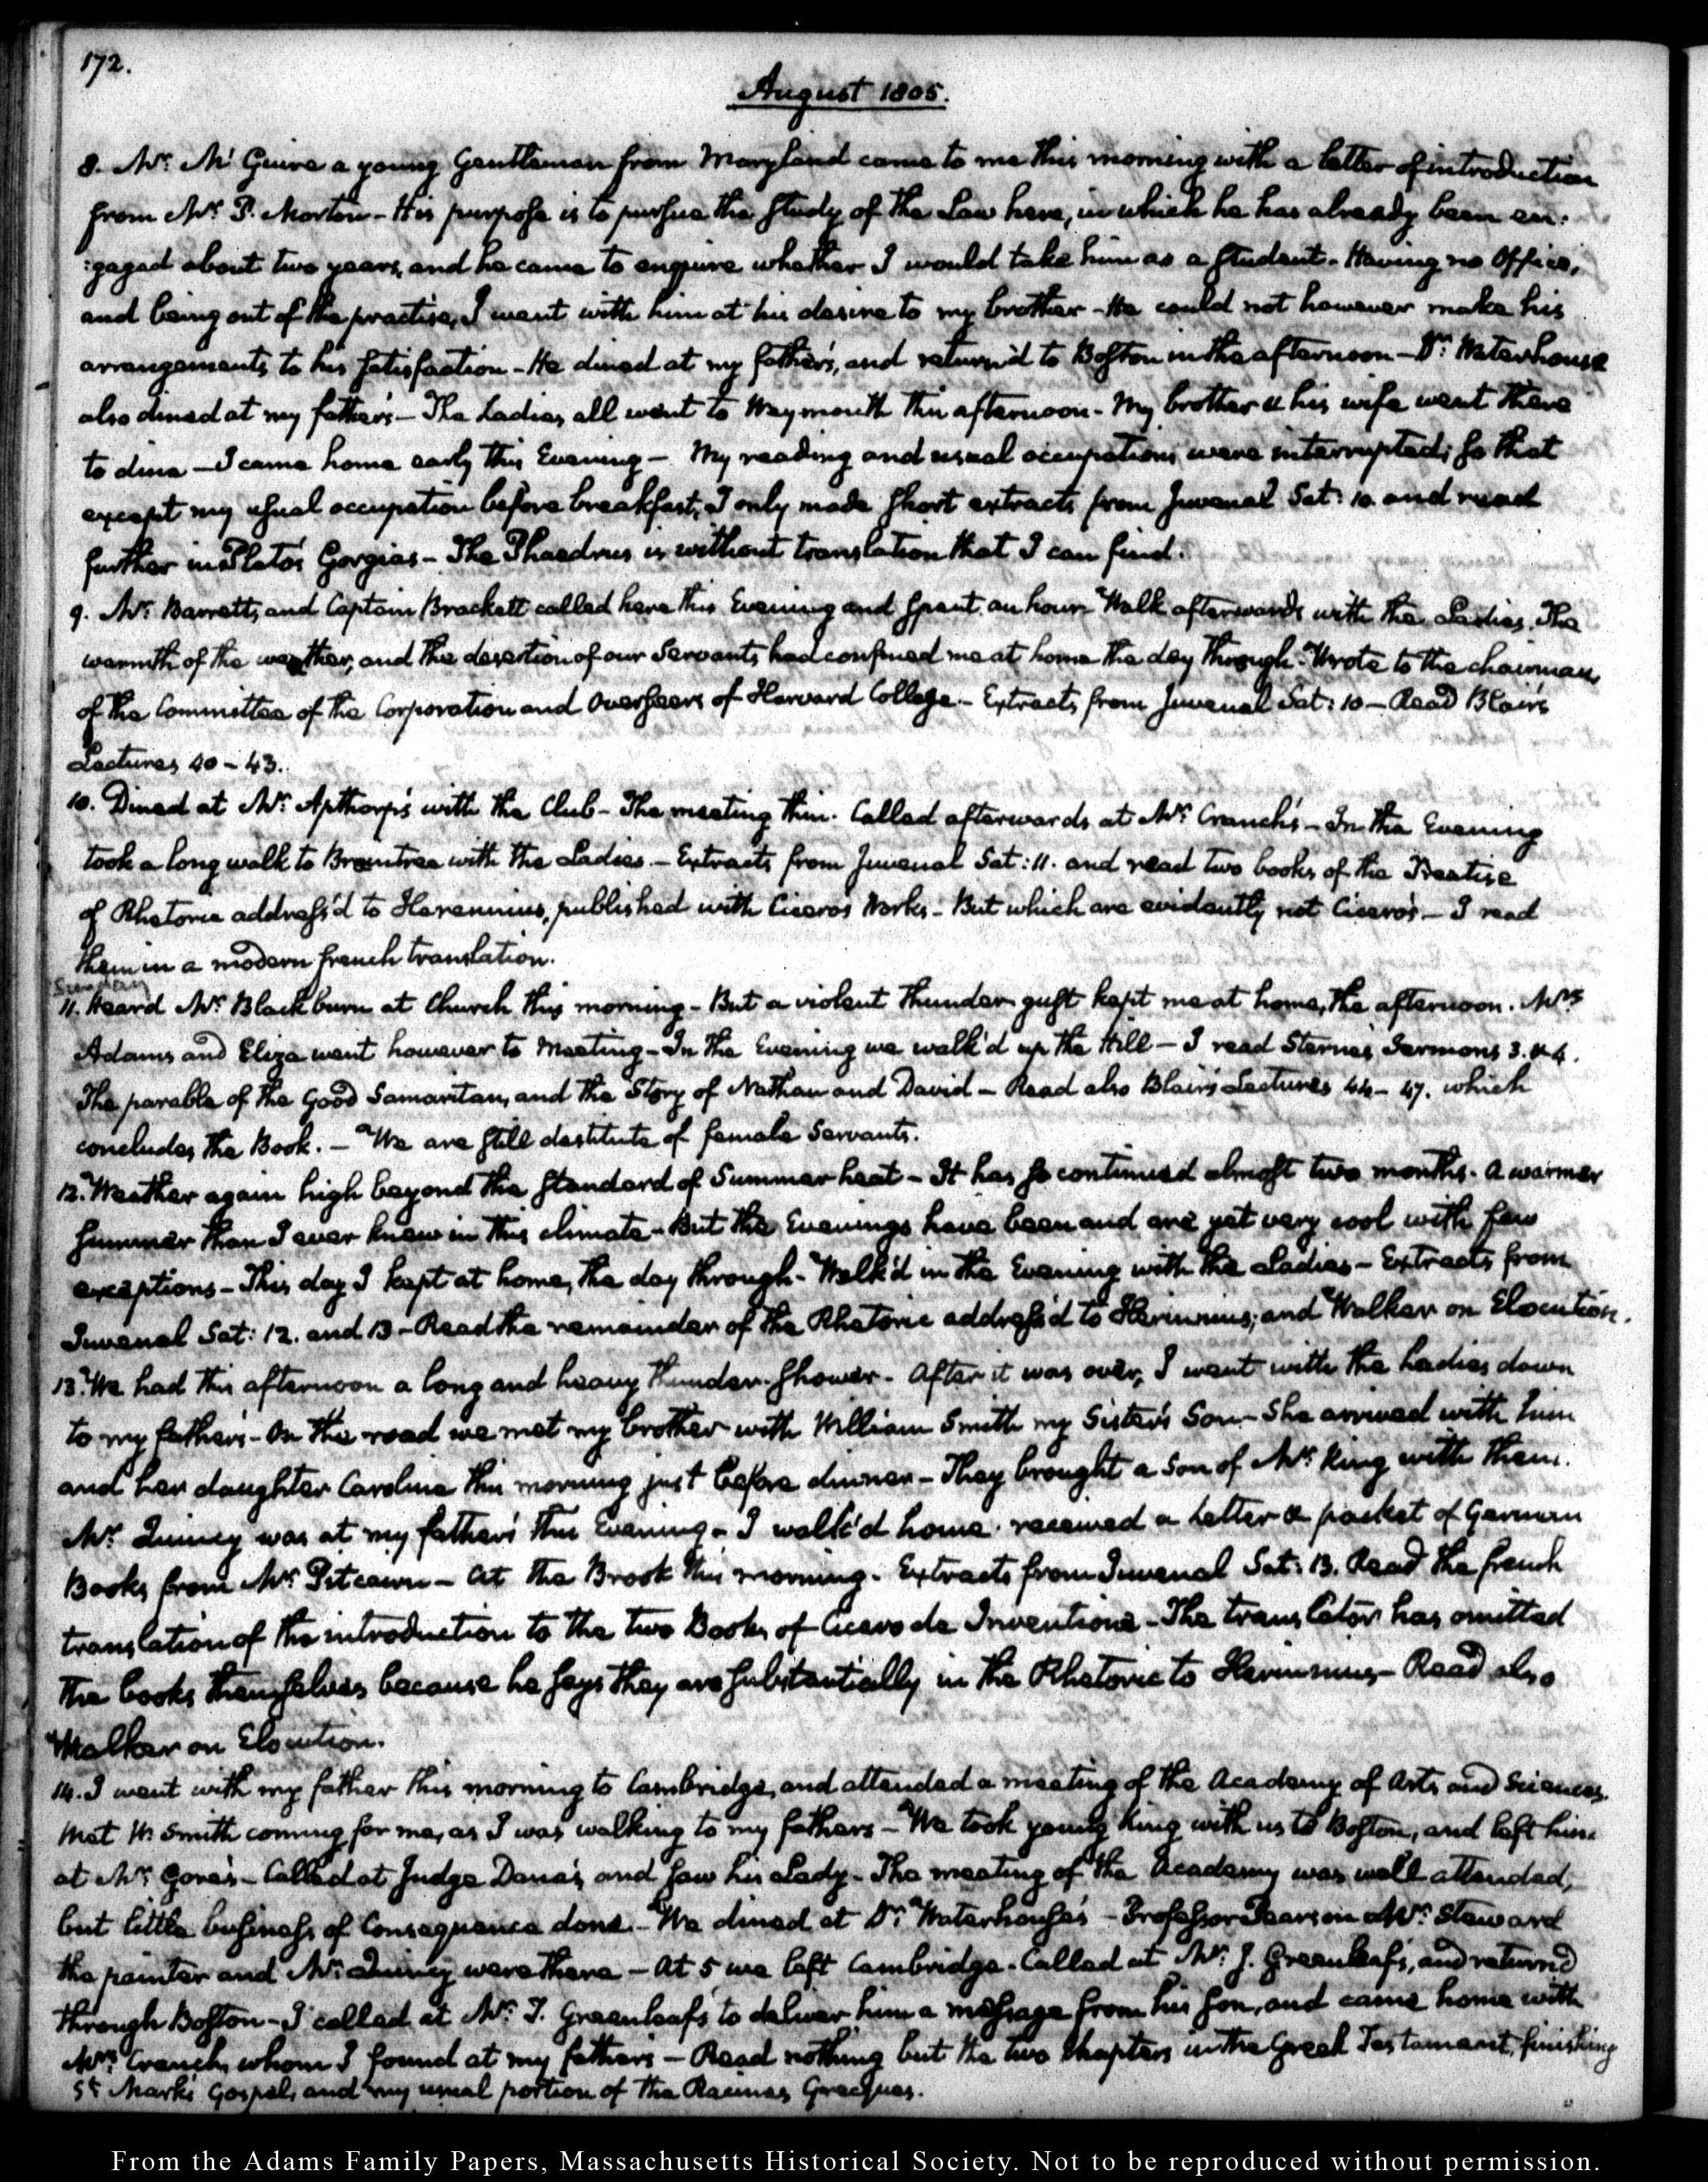 172.
August 1805.
8. Mr. Mc Guire a young Gentleman from Maryland came to me this morning with a letter of introduction
from Mr. P. Morton - His purpose is to pursue the study of the Law here, in which he has already been en:
:gaged about two years, and he came to enquire whether I would take him as a student - Having no Office,
and being out of the practise, I went with him at his desire to my brother - He could not however make his
arrangements to his satisfaction - He dined at my father's, and return'd to Boston in the afternoon - Dr. Waterhouse
also dined at my father's - The Ladies all went to Weymouth this afternoon - My brother & his wife went there
to dine - I came home early this Evening - My reading and usual occupations were interrupted; so that
except my usual occupation before breakfast, I only made short extracts from Juvenal Sat: 10. and read
further in Plato's Gorgias - The Phaedrus is without translation that I can find.
9. Mr. Barrett, and Captain Brackett called here this Evening and spent an hour - Walk afterwards with the Ladies. The
warmth of the weather, and the desertion of our Servants had confined me at home the day through - Wrote to the chairman
of the Committee of the Corporation and Overseers of Harvard College - Extracts from Juvenal Sat: 10 - Read Blair's
Lectures 40 - 43.
10. Dined at Mr. Apthorp's with the Club - The meeting thin. Called afterwards at Mr. Cranch's - In the Evening
took a long walk to Braintree with the Ladies - Extracts from Juvenal Sat: 11. and read two books of the Treatise
of Rhetoric address'd to Herennius, published with Cicero's Works - But which are evidently not Cicero's - I read
them in a modern french translation.
Sunday
11. Heard Mr. Blackburn at Church this morning - But a violent thunder gust kept me at home, the afternoon. Mrs.
Adams and Eliza went however to Meeting - In the Evening we walk'd up the Hill - I read Sterne's Sermons 3. & 4.
The parable of the Good Samaritan, and the Story of Nathan and David - Read also Blair's Lectures 44 - 47. which
concludes the Book. - We are still destitute of female Servants.
12. Weather again high beyond the standard of Summer heat - It has so continued almost two months. A warmer
summer than I ever knew in this climate - But the Evenings have been and are yet very cool with few
exceptions - This day I kept at home, the day through - Walk'd in the Evening with the Ladies - Extracts from
Juvenal Sat: 12. and 13 - Read the remainder of the Rhetoric address'd to Herennius; and Walker on Elocution.
13. We had this afternoon a long and heavy thunder-shower - After it was over, I went with the Ladies down
to my father's - On the road we met my brother with William Smith my Sister's Son - She arrived with him
and her daughter Caroline this morning just before dinner - They brought a Son of Mr. King with them.
Mr. Quincy was at my father's this Evening - I walk'd home. received a letter & packet of German
Books from Mr. Pitcairn - At the Brook this morning. Extracts from Juvenal Sat: 13. Read the french
translation of the introduction to the two Books of Cicero de Inventione - The translator has omitted
the books themselves because he says they are substantially in the Rhetoric to Herennius - Read also
Walker on Elocution.
14. I went with my father this morning to Cambridge, and attended a meeting of the Academy of Arts and Sciences.
Met W. Smith coming for me, as I was walking to my father's - We took young King with us to Boston, and left him
at Mr. Gore's - Called at Judge Dana's and saw his Lady - The meeting of the Academy was well attended,
but little business of Consequence done. - We dined at Dr. Waterhouse's - Professor Pearson Mr. Steward
the painter and Mr. Quincy were there - At 5 we left Cambridge. Called at Mr. J. Greenleaf's, and returned
through Boston - I called at Mr. T. Greenleaf's to deliver him a message from his son, and came home with
Mrs. Cranch, whom I found at my father's - Read nothing but the two Chapters in the Greek Testament, finishing
St. Mark's Gospel, and my usual portion of the Racines Grecques.
From the Adams Family Papers, Massachusetts Historical Society. Not to be reproduced without permission.